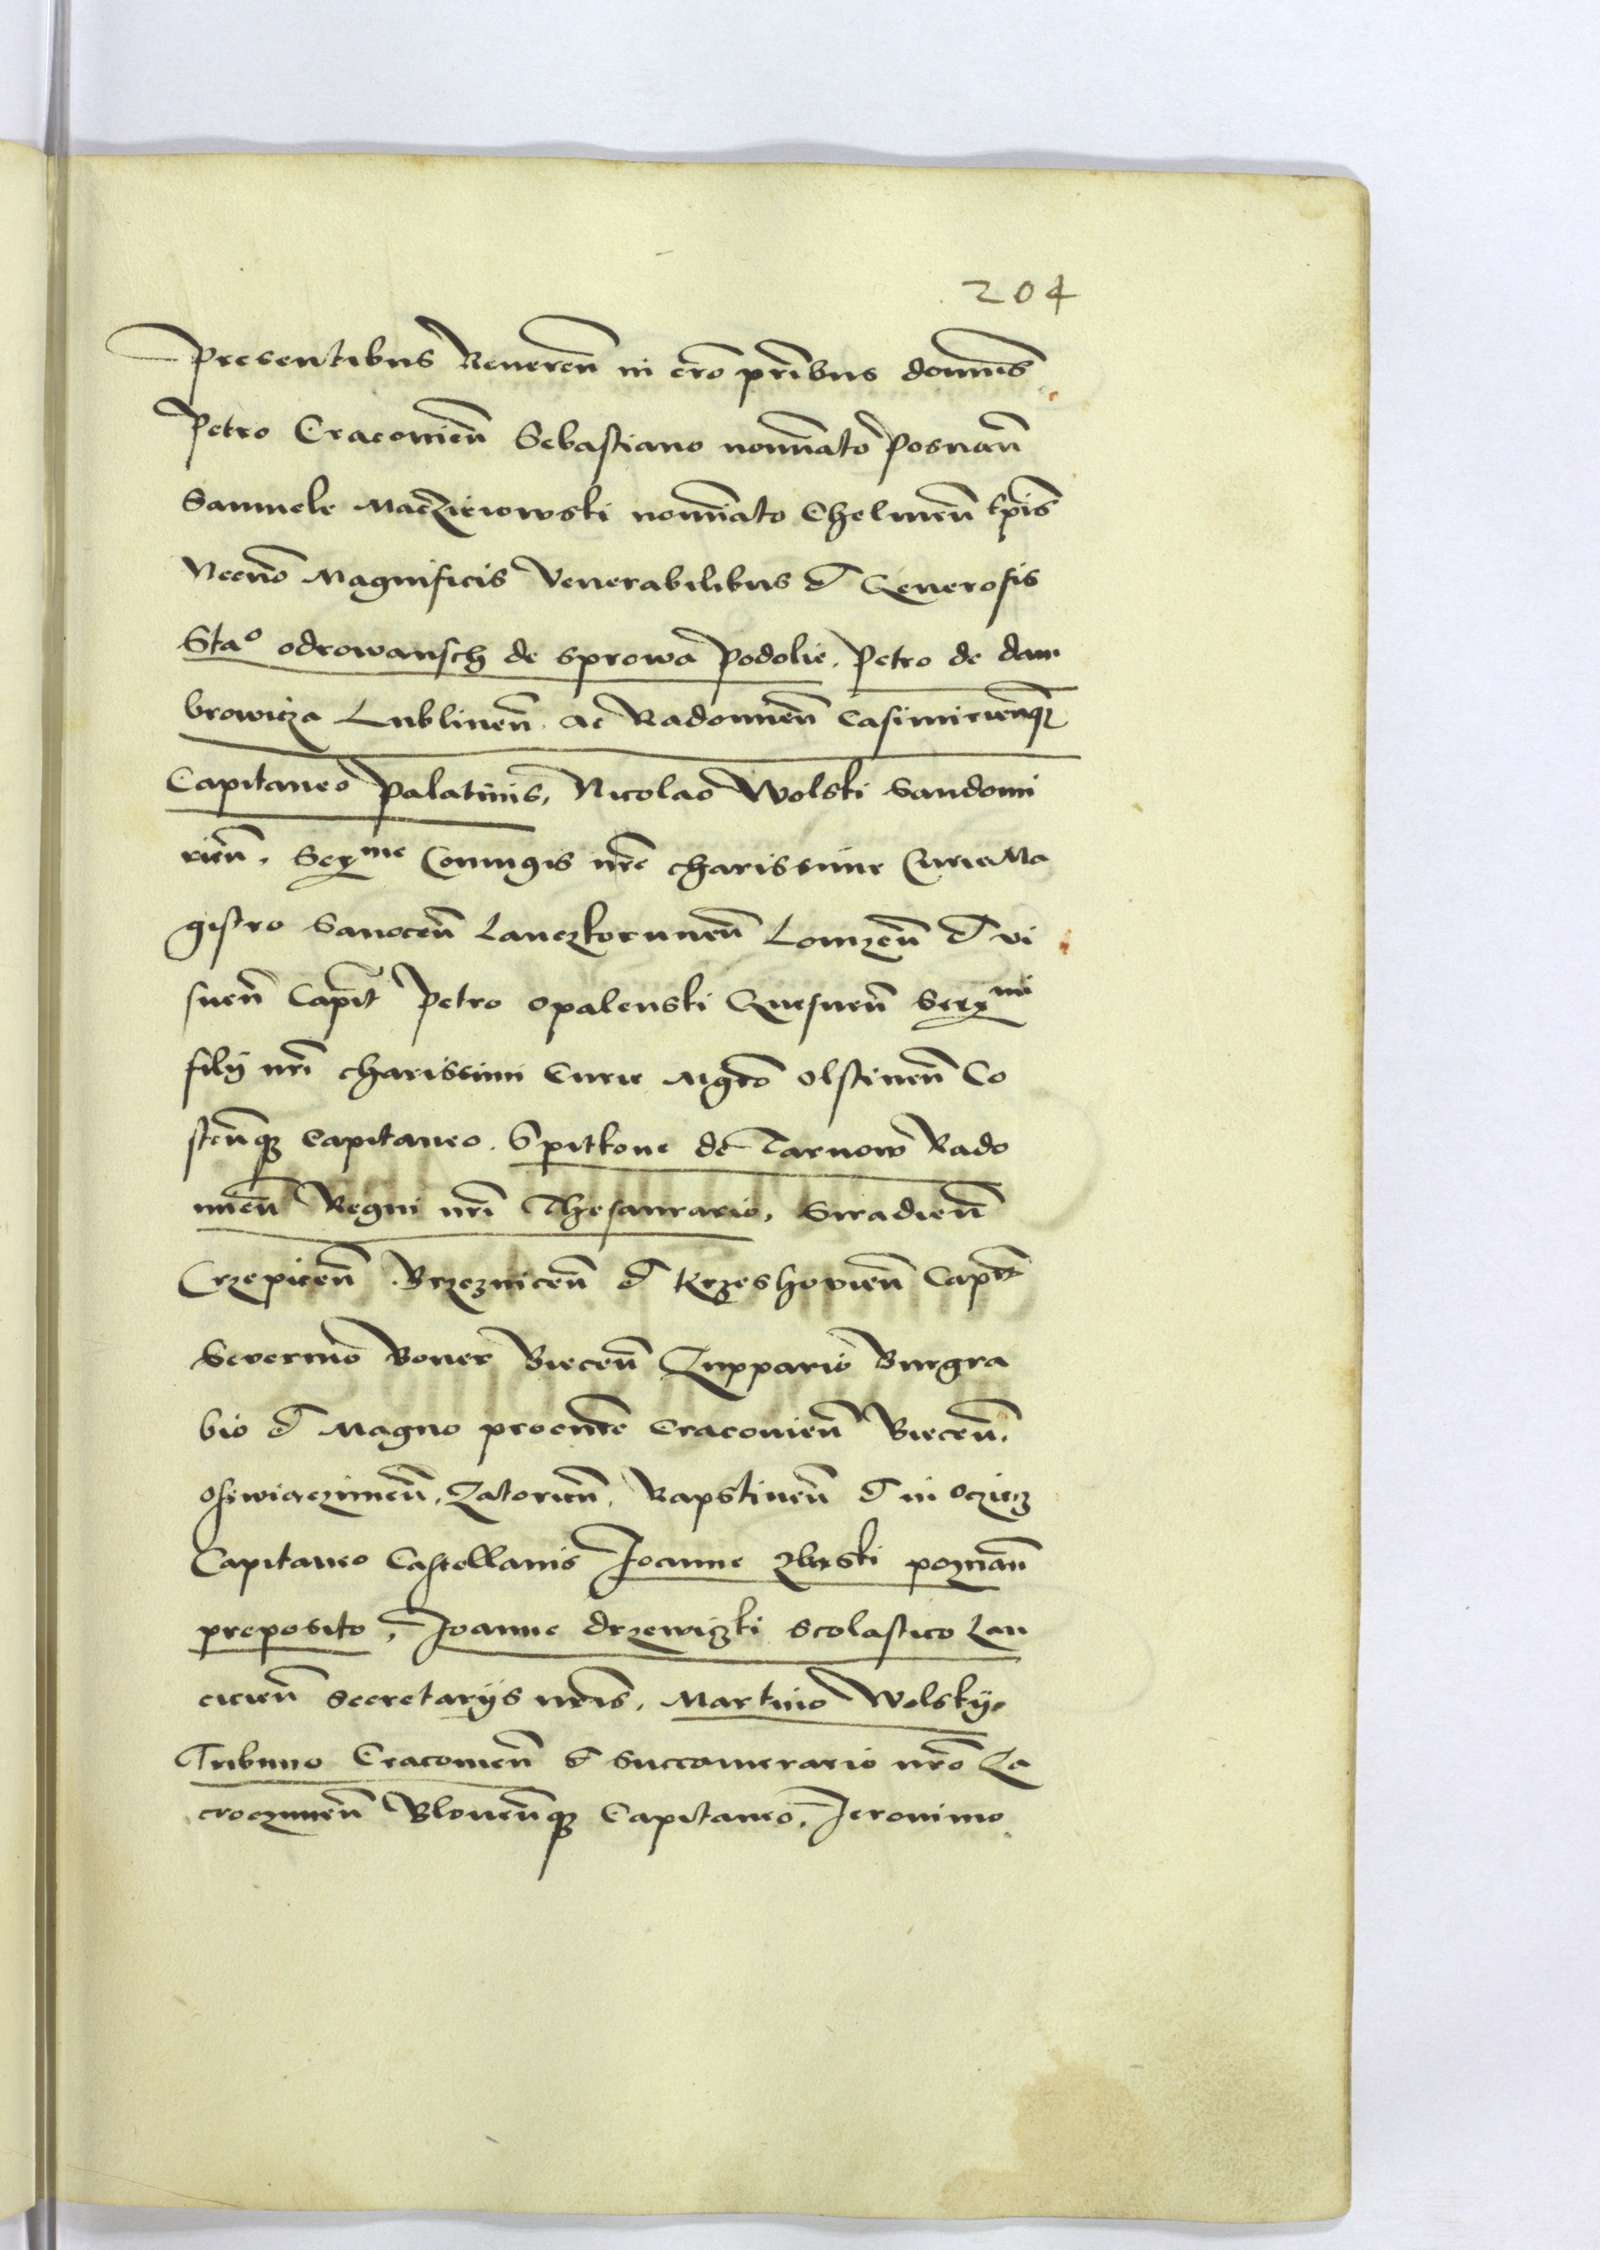 204
Presentibus Reueren̄ in cro͂ prib͂us domin͂s
Petro Cracouien̄ Sebastiano nomi͂ato Posnan̄
Samuele Maczieiowski nomi͂ato Chelmen̄ Ep͂is
Necno͂ Magnificis Venerabilibus et Generosis
Stao odrowansch de Sprowa Podolie. Petro de dam
browicza Lublinen̄. ac Radomien̄ Casimirienqꝫ
Capitaneo Palatinis, Nicolao Wolski Sandomi
rien̄. Serme Coniugis nr͂e charissime Curie Ma
gistro Sanocen̄ Lanczkorunen̄ Lomzen̄ et vi
snen̄ Capit͂ Petro Opalenski Gnesnen̄ Sermi
filij nr͂i charissimi Curie Mgr͂o Olstinen̄ Co
sten̄qꝫ Capitaneo. Spitkone de Tarnow Rado
mien̄ Regni nr͂i Thesaurario, Siradien̄
Crzepicen̄ Brzeznicen̄ et Krzeshovien̄ Capit͂
Severino Boner Biecen̄ Zuppario Burgra
bio et Magno procur͂e Cracouien̄ Biecen̄.
Osswiaczimen̄. Zatorien̄. Rapstinen̄ et in Oczicz
Capitaneo Castellanis Joanne zbąski poznan̄
preposito, Joanne drzewiczki scolastico Lan
cicien̄ Secretarijs nr͂is. Martino Wolskij
Tribuno Cracouien̄ et Succamerario nr͂o Za
croczimen̄ Blonen̄qꝫ Capitaneo. Jeronimo